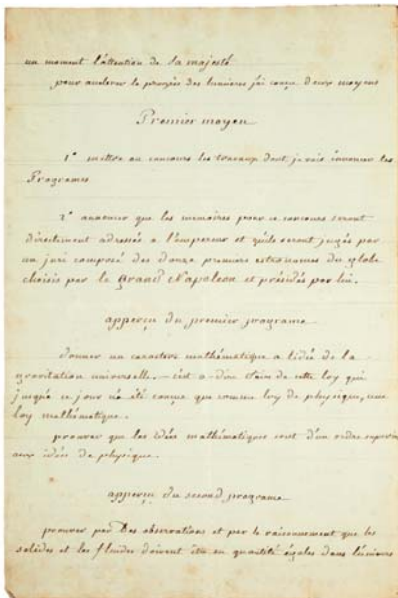 un moment l'attention de sa majesté
pour accelerer le progrès des lumieres j'ai conçu deux moyens
Premier moyen
1° mettre au concours les travaux dont je vais énoncer les
Programes
2° annoncer que les memoires pour ce concours seront
directement adressés a l'empereur et qu'ils seront jugés par
un juri composé des douze premiers astronomes du globe
choisis par le grand Napoleon et présidés par lui.
apperçu du premier programe
donner un caractere mathématique a l'idée de la
gravitation universelle. – c'est a dire faire de cette loy qui
jusqu'a ce jour n'a été conçue que comme loy de physique, une
loy mathématique.
prouver que les idées mathématiques sont d'un ordre superieur
aux idées de physique.
apperçu du second programe
prouver par des observations et par le raisonnement que les
solides et les fluides doivent être en quantité égales dans l'univers